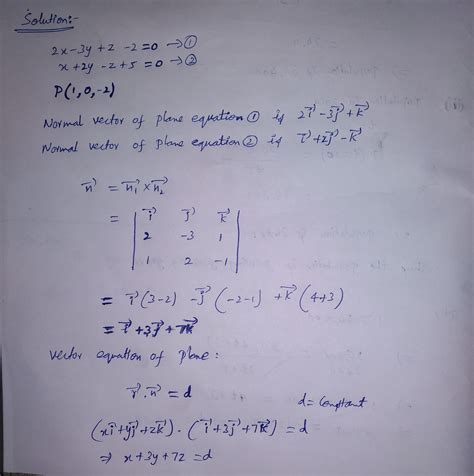 Solution:-
2x-3y+z-2=0 →①
x+2y-z+5=0 →②
P(1,0,-2)
Normal vector of plane equation ① is 2i⃗-3j⃗+k⃗
Normal vector of plane equation ② is i⃗+2j⃗-k⃗
n⃗ = n⃗₁ × n⃗₂
= | i⃗ j⃗ k⃗ |
| 2 -3 1 |
| 1 2 -1 |
= i⃗(3-2) -j⃗(-2-1) +k⃗(4+3)
= i⃗+3j⃗+7k⃗
Vector equation of plane:
r⃗.n⃗ = d d = constant
(xi⃗+yj⃗+zk⃗).(i⃗+3j⃗+7k⃗) = d
⇒ x+3y+7z = d